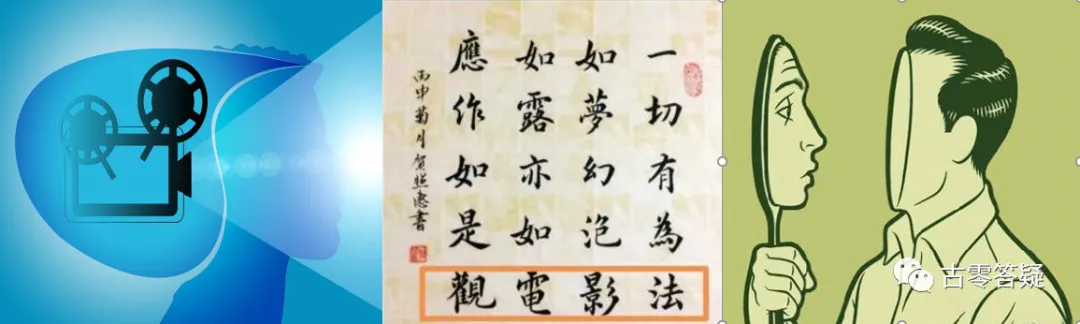 一切有為法
如夢幻泡影
如露亦如電
應作如是觀
丙申菊月賀 書
古零答疑